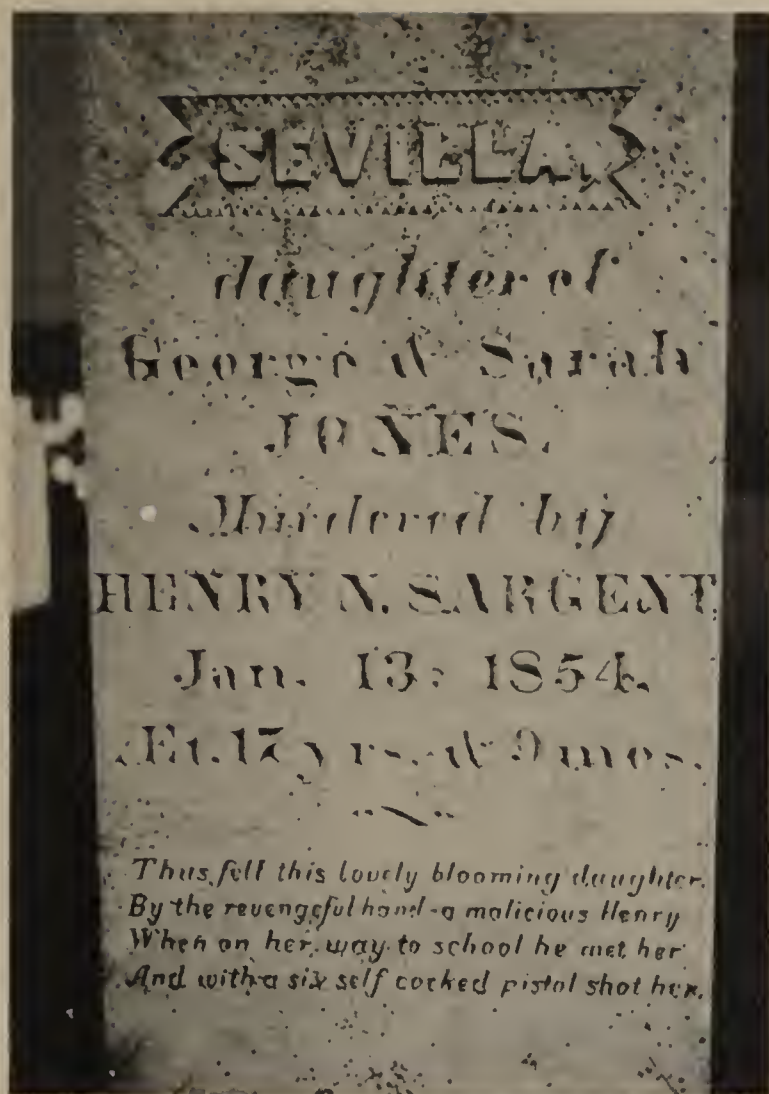 SEVILLA,
daughter of
George & Sarah
JONES.
Murdered by
HENRY N. SARGENT.
Jan. 13, 1854.
Æt. 17 yrs. & 9 mos.
Thus fell this lovely blooming daughter.
By the revengeful hand - a malicious Henry
When on her way to school he met her
And with a six self cocked pistol shot her.